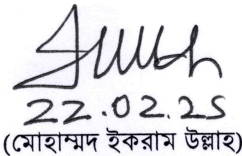 22.02.25
(মোহাম্মদ ইকরাম উল্লাহ)